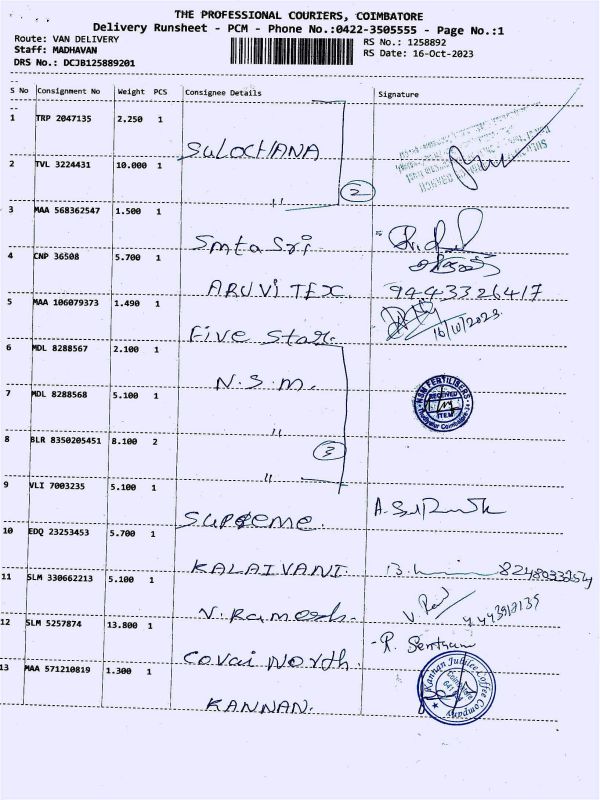 THE PROFESSIONAL COURIERS, COIMBATORE
Delivery Runsheet - PCM - Phone No.:0422-3505555 - Page No.:1
Route: VAN DELIVERY
Staff: MADHAVAN
DRS No.: DCJB125889201
RS No.: 1258892
RS Date: 16-Oct-2023
S No Consignment No Weight PCS Consignee Details Signature
1 TRP 2047135 2.250 1
SULOCHANA
2 TVL 3224431 10.000 1
"
2
3 MAA 568362547 1.500 1
Smta Sri
4 CNP 36508 5.700 1
ARUVI TEX. 9443326417
5 MAA 106079373 1.490 1
Five Star. 16/10/2023
6 MDL 8288567 2.100 1
N.S.M.
NSM FERTILISERS
RECEIVED
ITEM
7 MDL 8288568 5.100 1
"
3
8 BLR 8350205451 8.100 2
"
9 VLI 7003235 5.100 1
Supreme.
10 EDQ 23253453 5.700 1
KALAIVANI
11 SLM 330662213 5.100 1
V. Ramesh.
12 SLM 5257874 13.800 1
Covai North.
R. Sentham
13 MAA 571210819 1.300 1
KANNAN.
Kannan Jubilee Coffee Company